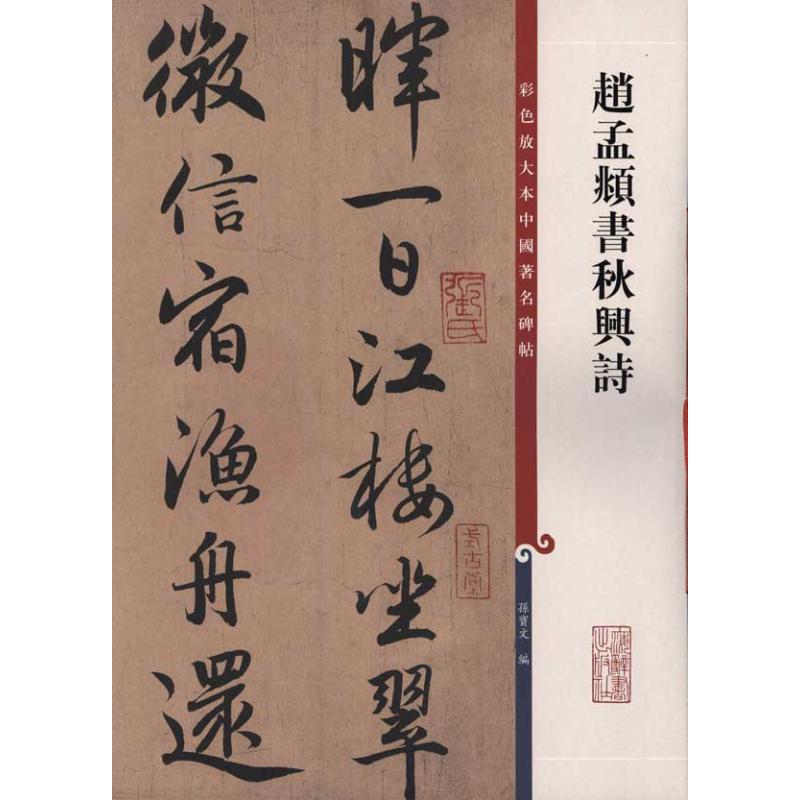 趙孟頫書秋興詩
彩色放大本中國著名碑帖
孫寶文 編
暉一日江樓坐翠
微信宿漁舟還
張氏